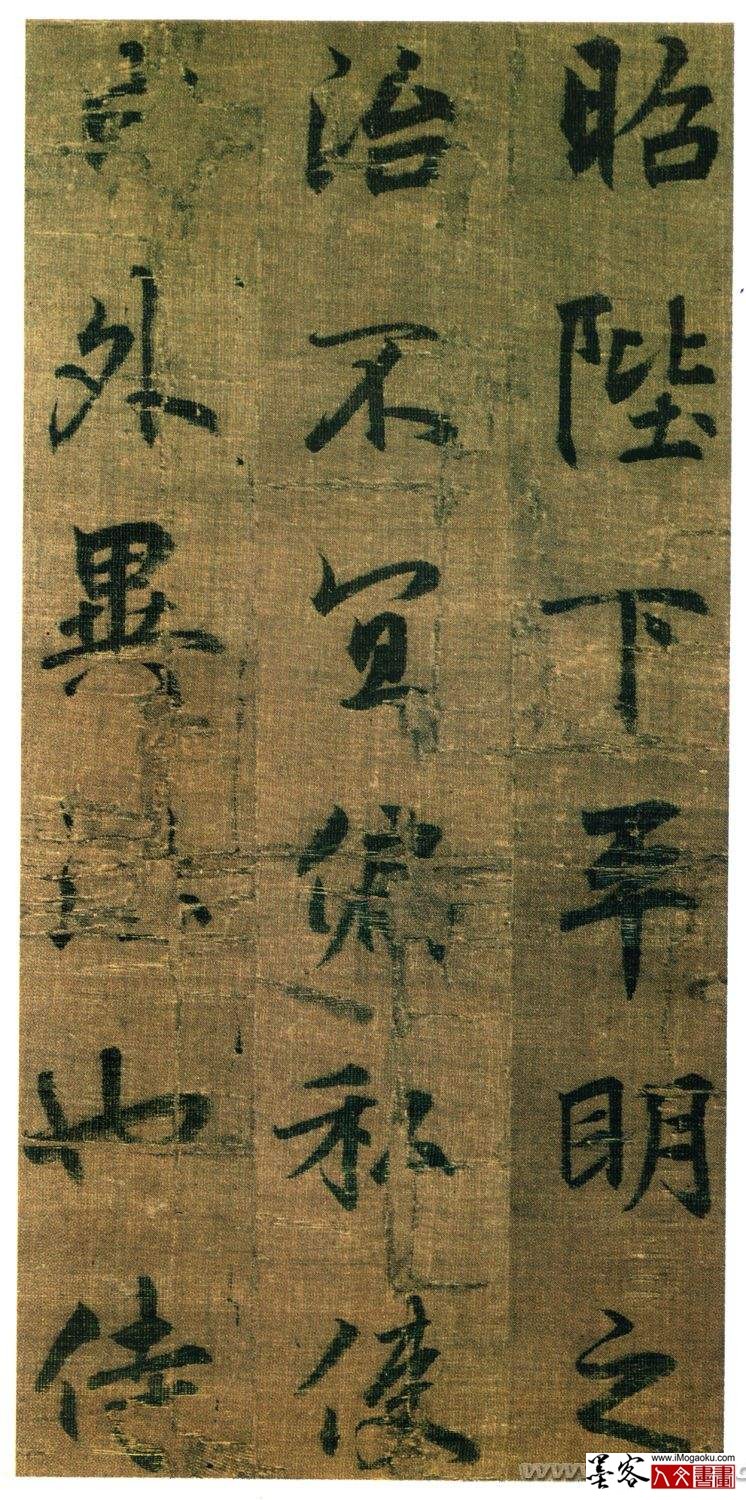 昭陛下平明之
治不宜偏私使
外異也侍
墨客
www.iMogaoku.com
人文書畫